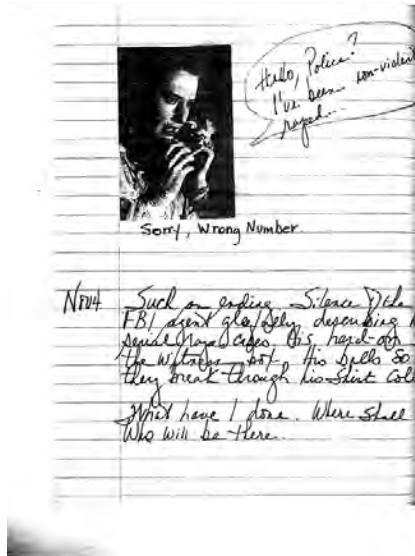 Hello, Police?
I've been non-violent
raped...
Sorry, Wrong Number
Nov4 Such an ending Silence
FBI agent describing
serial his hard-on
the witness box His balls so
they break through his shirt col
What have I done. Where shall
Who will be there.